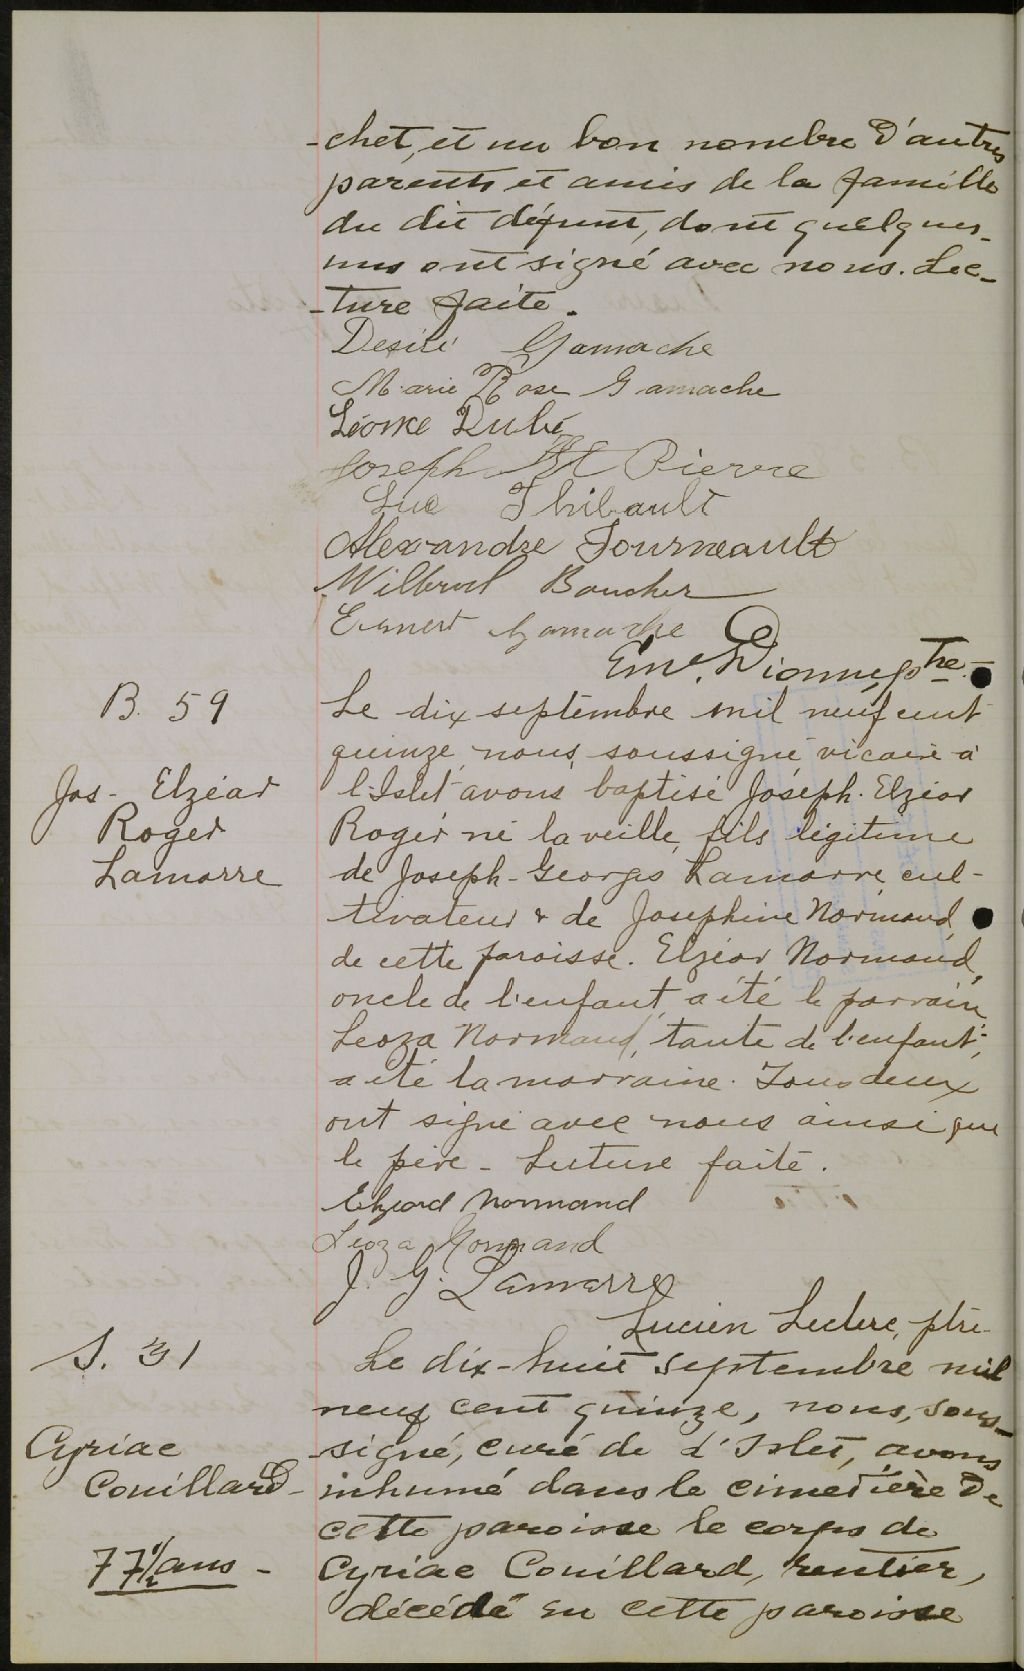 -chet, et un bon nombre d'autres
parents et amis de la famille
du dit défunt, dont quelques-
uns ont signé avec nous. Lec-
-ture faite.
Desiré Gamache
Marie Rose Gamache
Léonce Dubé
Joseph St Pierre
Luc Thibault
Alexandre Fourneault
Wilbrod Boucher
Ernest Gamache
Em. Dionne, ptre.
B. 59
Jos- Elzéar
Roger
Lamarre
Le dix septembre mil neuf cent
quinze, nous, soussigné vicaire à
l'Islet avons baptisé Joseph-Elzéar
Roger né la veille, fils légitime
de Joseph-Georges Lamarre cul-
tivateur & de Josephine Normand,
de cette paroisse. Elzéar Normand,
oncle de l'enfant, a été le parrain,
Leoza Normand, tante de l'enfant,
a été la marraine. Tous deux
ont signé avec nous ainsi que
le père - Lecture faite.
Elzeard Normand
Leoza Normand
J. G. Lamarre
Lucien Leclerc, ptre
S. 31
Cyriac
Couillard-
77 1/2 ans -
Le dix-huit septembre mil
neuf cent quinze, nous, sous-
-signé, curé de L'Islet, avons
inhumé dans le cimetière de
cette paroisse le corps de
Cyriac Couillard, rentier,
décédé en cette paroisse